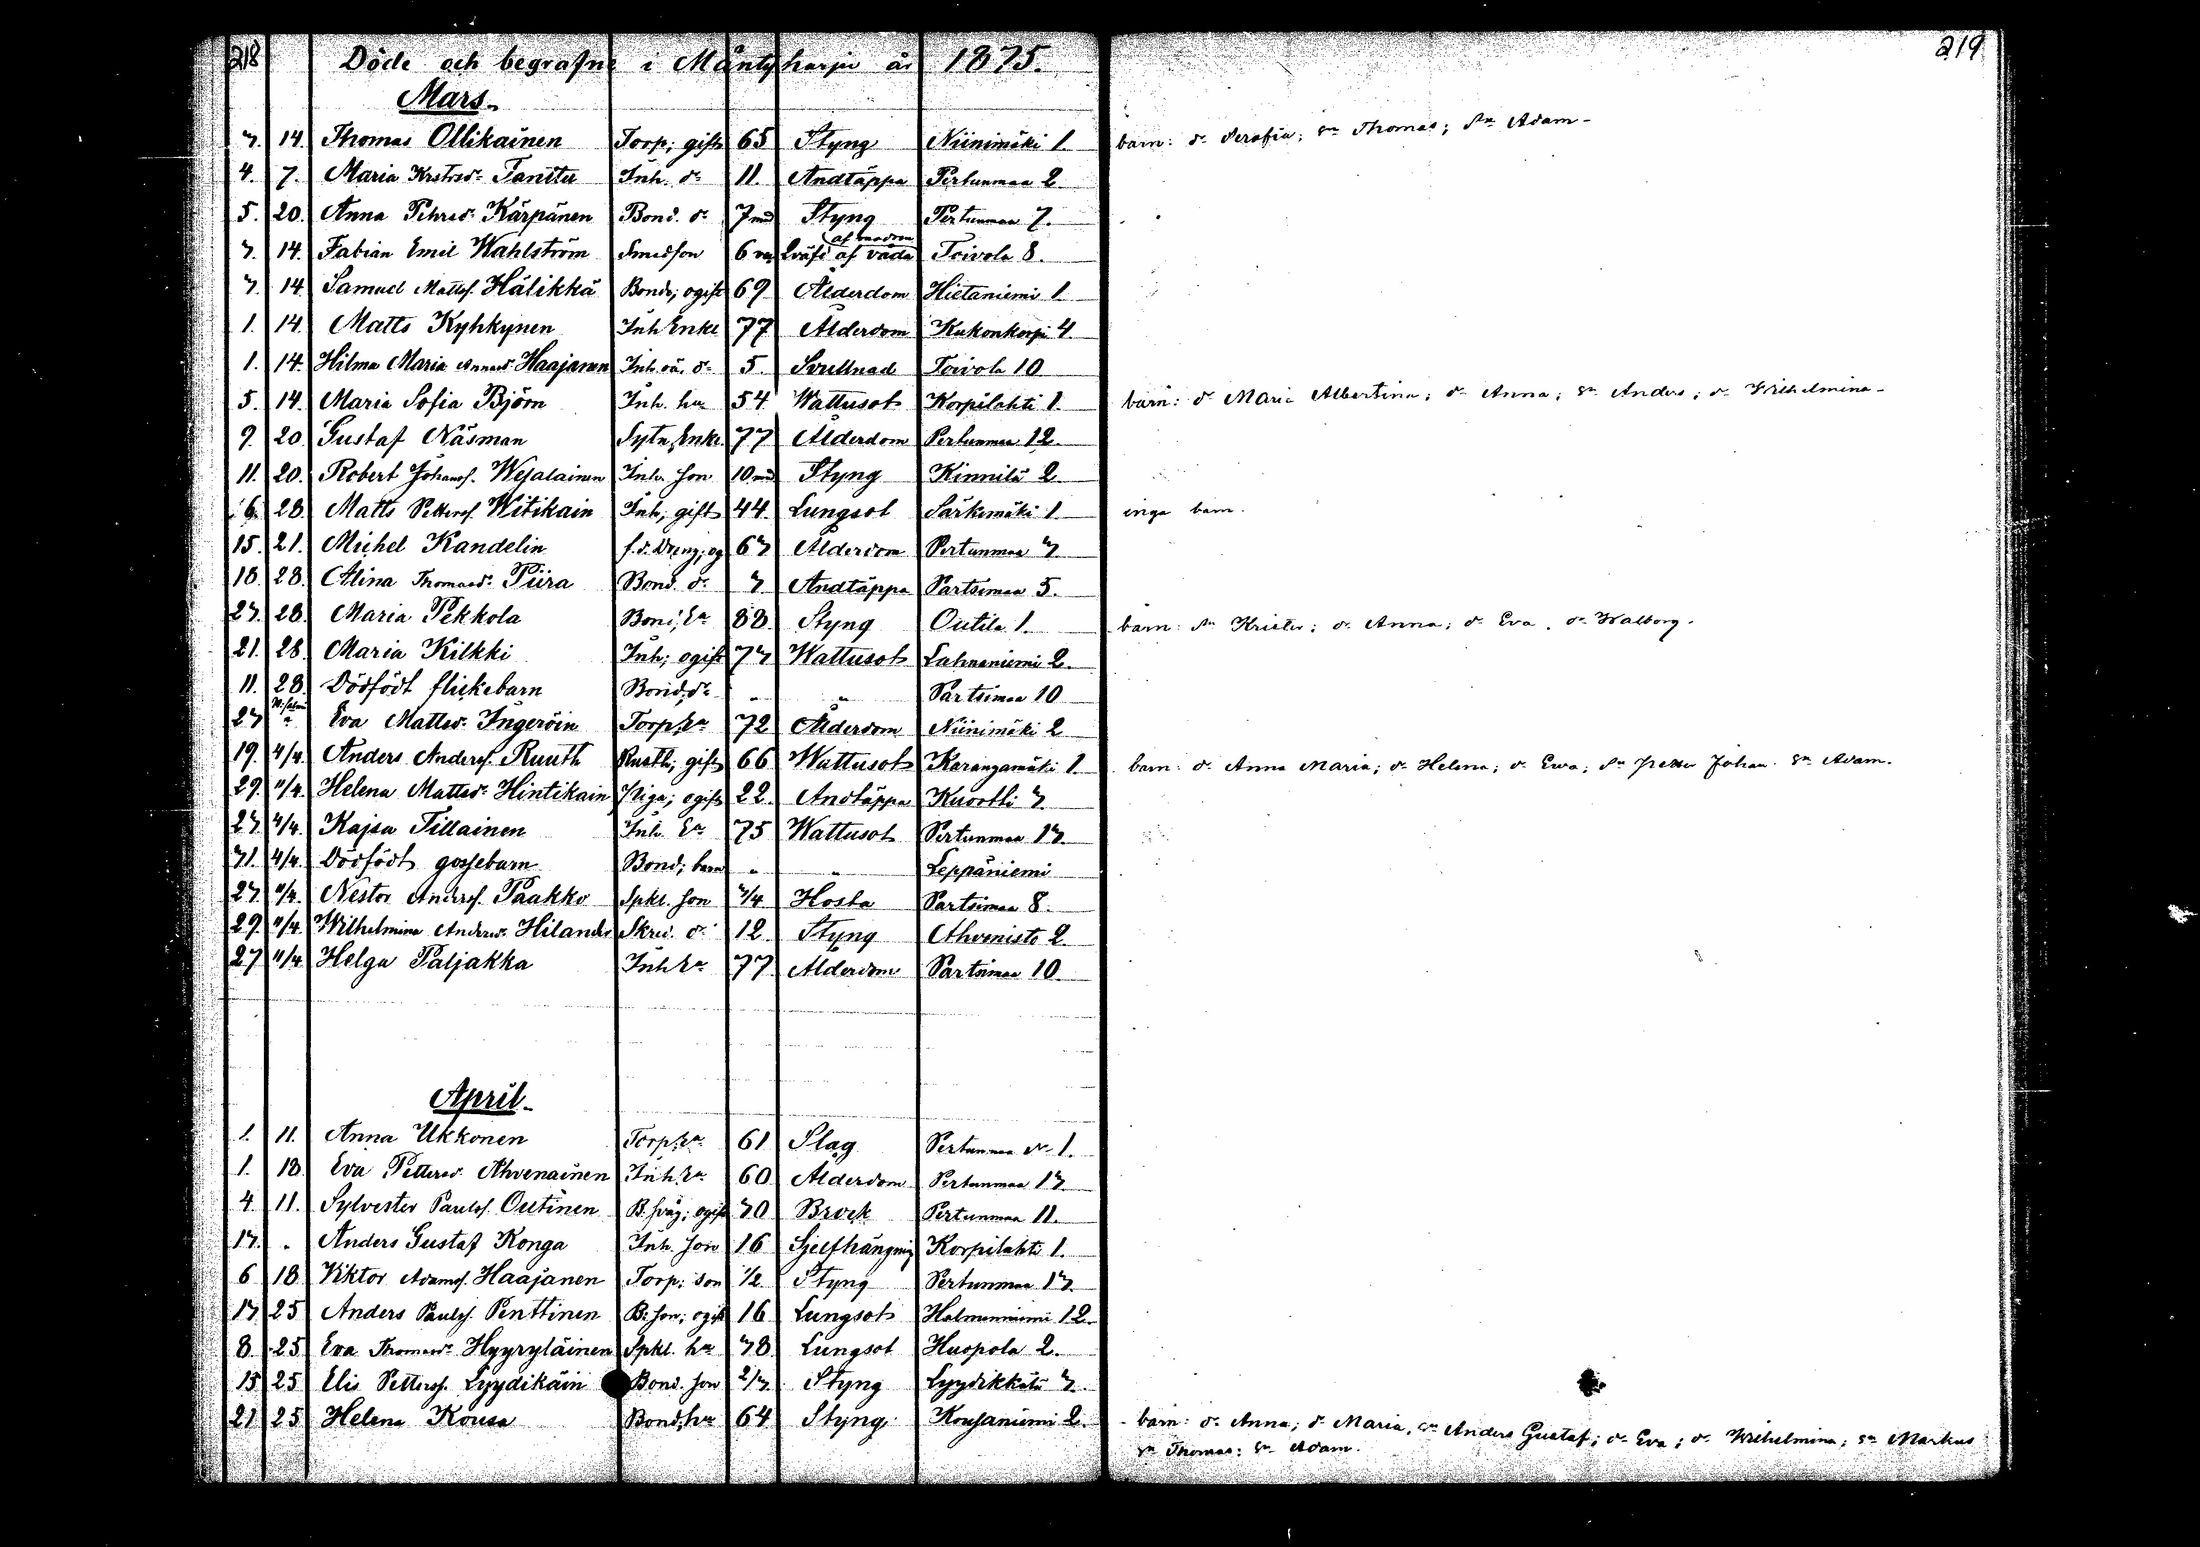 218 Döde och begrafne i Mäntyharju år 1875. 219
Mars.
3. 14. Thomas Ollikainen Torp; gift 65 Styng Niinimäki 1. barn: dr Serafia; sn Thomas; sn Adam.
4. 7. Maria Kristsdr Tanttu Inh. dr 11. Andtäppa Pertunmaa 2.
5. 20. Anna Pehrsd. Kärpänen Bond. dr 7 md Styng Pertunmaa 7.
3. 14. Fabian Emil Wahlström Smedson 6 af modren af våda Toivola 8.
3. 14. Samuel Mattss. Hälikkä Bonde; ogift 69 Ålderdom Hietaniemi 1.
1. 14. Matts Kyhkynen Inh Enkl 77 Ålderdom Kukonkorpi 4
1. 14. Hilma Maria Annasd. Haajanen Inh. oä. dr 5. Svullnad Toivola 10
5. 14. Maria Sofia Björn Inh. hu 54 Wattusot Korpilahti 1. barn: dr Maria Albertina; dr Anna; sn Anders; dr Wilhelmina
9. 20. Gustaf Näsman Sytn. Enkl 77 Ålderdom Pertunmaa 12.
11. 20. Robert Johanss. Wesalainen Inh. son 10 md Styng Kinnilä 2.
6. 28. Matts Petterss. Witikain Inh; gift 44. Lungsot Särkimäki 1. inga barn.
15. 21. Michel Kandelin f.d. Dreng; og 63 Ålderdom Pertunmaa 3.
18. 28. Alina Thomasd. Piira Bond. dr 3. Andtäppa Partsimaa 5.
23. 28. Maria Pekkola Bond. Ea 88. Styng Outila 1. barn: sn Krister; dr Anna; dr Eva, dr Walborg.
21. 28. Maria Kilkki Inh; ogift 73 Wattusot Lahnaniemi 2.
11. 28. Dödfödt flickebarn Bond; dr " " Partsimaa 10
23 " Eva Mattsd. Ingeröin Torp. Ea 72 Ålderdom Niinimäki 2
19. 4/4. Anders Anderss. Ruuth Rusth; gift 66 Wattusot Karangamäki 1. barn: dr Anna Maria; dr Helena; dr Ewa; sn Petter Johan. sn Adam.
29. 11/4. Helena Mattsd. Hintikain Piga; ogift 22. Andtäppa Kuortti 3.
23. 4/4. Kajsa Tillainen Inh. Ea 75 Wattusot Pertunmaa 13.
31. 4/4. Dödfödt gossebarn Bond; barn " " Leppäniemi
23. 11/4. Nestor Anderss. Paakko Spkl. son 3/4 Hosta Partsimaa 8.
29. 11/4. Wilhelmina Andersd. Hilander Skred. dr 12. Styng Ahvenisto 2.
27 11/4. Helga Paljakka Inh Ea 77. Ålderdom Partsimaa 10
April.
1. 11. Anna Ukkonen Torp. Ea 61 Slag Pertunmaa 1.
1. 18. Eva Pettersd. Ahvenainen Inh. Ea 60 Ålderdom Pertunmaa 13.
4. 11. Sylvester Paulss. Outinen B. sväg; ogift 30 Brock Pertunmaa 11.
13. " Anders Gustaf Konga Inh. son 16 Sjelfhängning Korpilahti 1.
6 18 Viktor Adamss. Haajanen Torp; son 1/2 Styng Pertunmaa 13.
13 25 Anders Paulss. Penttinen B; son; ogift 16 Lungsot Halmenniemi 12.
8. 25. Eva Thomasdr Hyyryläinen Spkl. hu 38 Lungsot Huopola 2.
15 25 Elis Petterss. Lyydikäin Bond. son 2/3 Styng Lyydikkälä 3.
21 25 Helena Kousa Bond. hu 64 Styng. Kousaniemi 2. barn: dr Anna; dr Maria, sn Anders Gustaf; dr Eva; dr Wilhelmina; sn Markus
sn Thomas: sn Adam.